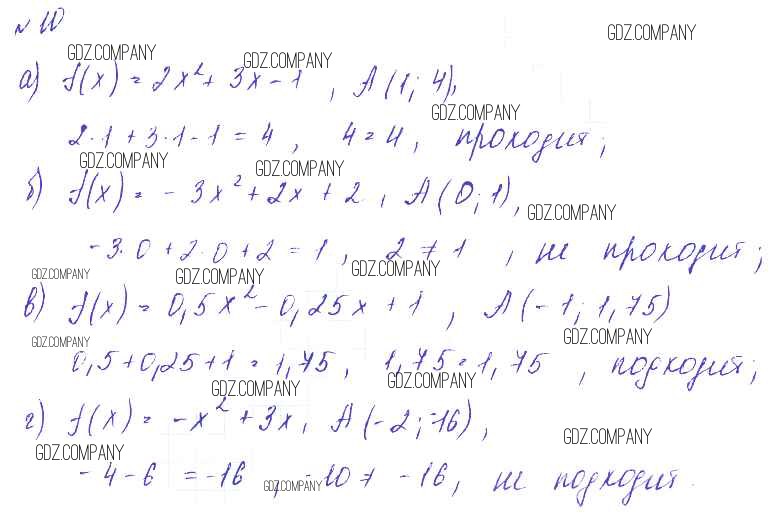 № 10
GDZ.COMPANY
GDZ.COMPANY GDZ.COMPANY
а) f(x) = 2x² + 3x - 1 , A (1; 4),
GDZ.COMPANY
2·1 + 3·1 - 1 = 4 , 4 = 4 , проходит;
GDZ.COMPANY GDZ.COMPANY
б) f(x) = - 3x² + 2x + 2 , A (0; 1),
GDZ.COMPANY
-3·0 + 2·0 + 2 = 1 , 2 ≠ 1 , не проходит;
GDZ.COMPANY GDZ.COMPANY GDZ.COMPANY
в) f(x) = 0,5x² - 0,25x + 1 , A (-1; 1,75)
GDZ.COMPANY GDZ.COMPANY
0,5 + 0,25 + 1 = 1,75 , 1,75 = 1,75 , подходит;
GDZ.COMPANY GDZ.COMPANY
г) f(x) = -x² + 3x , A (-2; -16),
GDZ.COMPANY GDZ.COMPANY
-4 - 6 = -16 , -10 ≠ -16 , не подходит.
GDZ.COMPANY